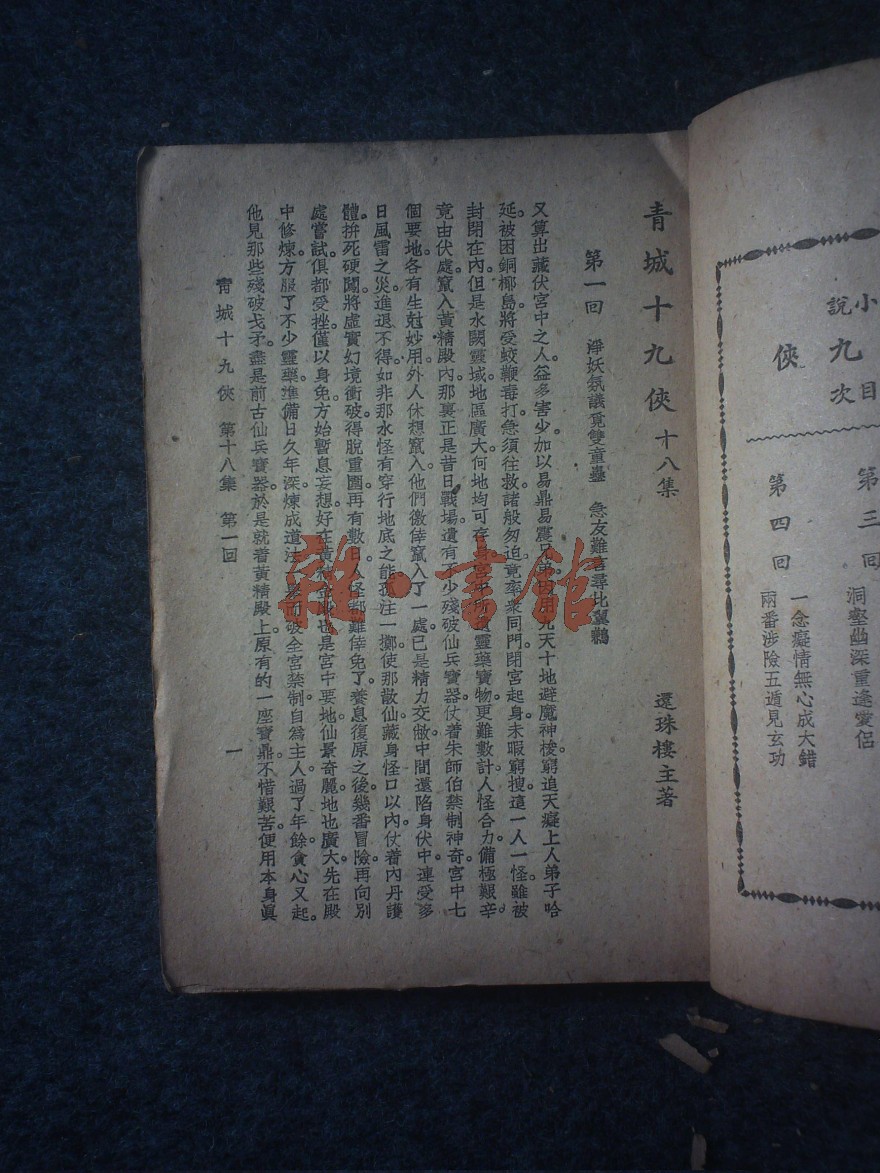 小
說
九
目
俠
次
第三回
洞壑幽深重逢愛侶
第四回
一念癡情無心成大錯
兩番涉險五遁見玄功
青城十九俠 十八集
還珠樓主著
第一回 淨妖氛議覓雙童蠱 急友難 尋比翼鶼
又算出藏伏宮中之人益多害少加以易鼎易震兄弟 用九天十地避魔神梭窮追天癡上人弟子哈
延被困銅椰島將受蛟鞭毒打急須往救諸般匆迫竟率衆同門閉宮起身未暇窮搜這一人一怪雖被
封閉在內但是水闕靈域地區廣大何地均可存身宮中所 靈藥寶物更難數計人怪合力備極艱辛。
竟由伏處竄入黃精殿內那裏正是昔日戰場遺有不少殘破仙兵寶器仗着朱師伯禁制神奇宮中七
個要地各有生尅妙用外人休想竄入他們徼倖竄入了一處已是精力交敝中間還陷身伏中連受多
日風雷之災進退不得如非那水怪有穿行地底之能孤注一擲使那散仙藏身怪口以內仗着內丹護
體拚死硬闖將虛實幻境衝破得脫重圍再有數日人怪都難倖免了。養息復原之後幾番冒險再向別
處嘗試俱都受挫僅以身免方始暫息妄想好在黃精 也是宮中要地仙景奇麗。地也廣大先在殿
中修煉方服了不少靈藥準備日久年深煉成道法 破全宮禁制自爲主人過了年餘貪心又起。
他見那些殘破戈矛盡是前古仙兵寶器於是就着黃精殿上原有的一座寶鼎不惜艱苦便用本身眞
青城十九俠 第十八集 第一回
一
雜·書館